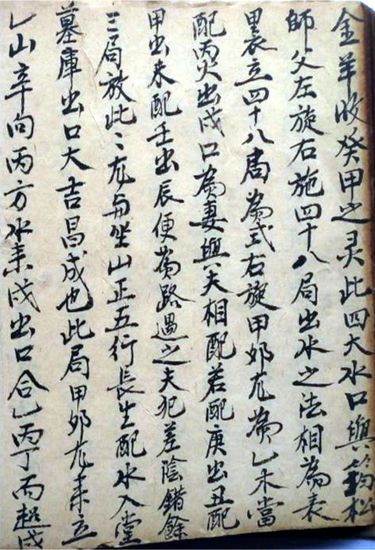 金羊收癸甲之灵此四大水口與筠松
師父左旋右施四十八局出水之法相為表
裏立四十八局為式右旋甲卯龙為乙木當
配丙火出戌口為妻與夫相配若配庚出丑配
甲出未配壬出辰便為路遇之夫犯差陰錯餘
三局放此〻龙与坐山正五行長生配水入堂
墓庫出口大吉昌成也此局甲卯龙来立
乙山辛向丙方水来戌出口合乙丙丁而趨戌